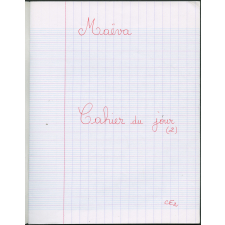 Maëva
Cahier du jour
(2)